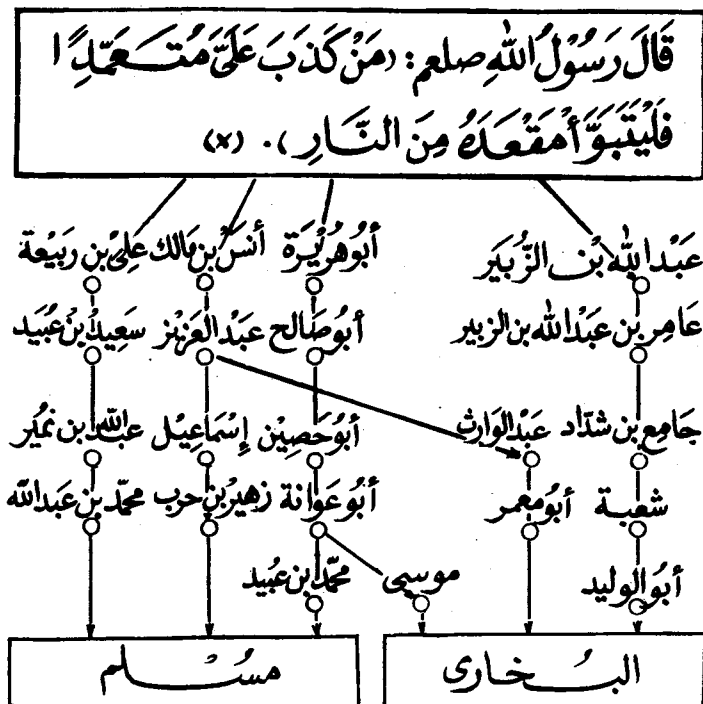 قَالَ رَسُوْلُ اللهِ صلعم: (مَنْ كَذَبَ عَلَيَّ مُتَعَمِّدًا
فَلْيَتَبَوَّأْ مَقْعَدَهُ مِنَ النَّارِ). (x)
عَبْدُ اللهِ بْنُ الزُّبَيْرِ أَبُو هُرَيْرَةَ أنسُ بْنُ مَالك عَلِيُّ بن رَبِيعَة
عَامِر بن عَبْدِ الله بن الزبير أبُو صَالح عَبْدُ العَزِيز سَعِيدُ بْنُ عُبَيد
جَامِع بن شدّاد عَبْدُ الوَارِث أبُو حَصِين إِسْمَاعِيْل عبد الله بن نُمَيْر
شعبة أبو معمر أبُو عَوَانة زهير بن حرب محمّد بن عبد الله
أبُو الوليد موسى محمّد بن عبيد
البُخارى مُسْلم